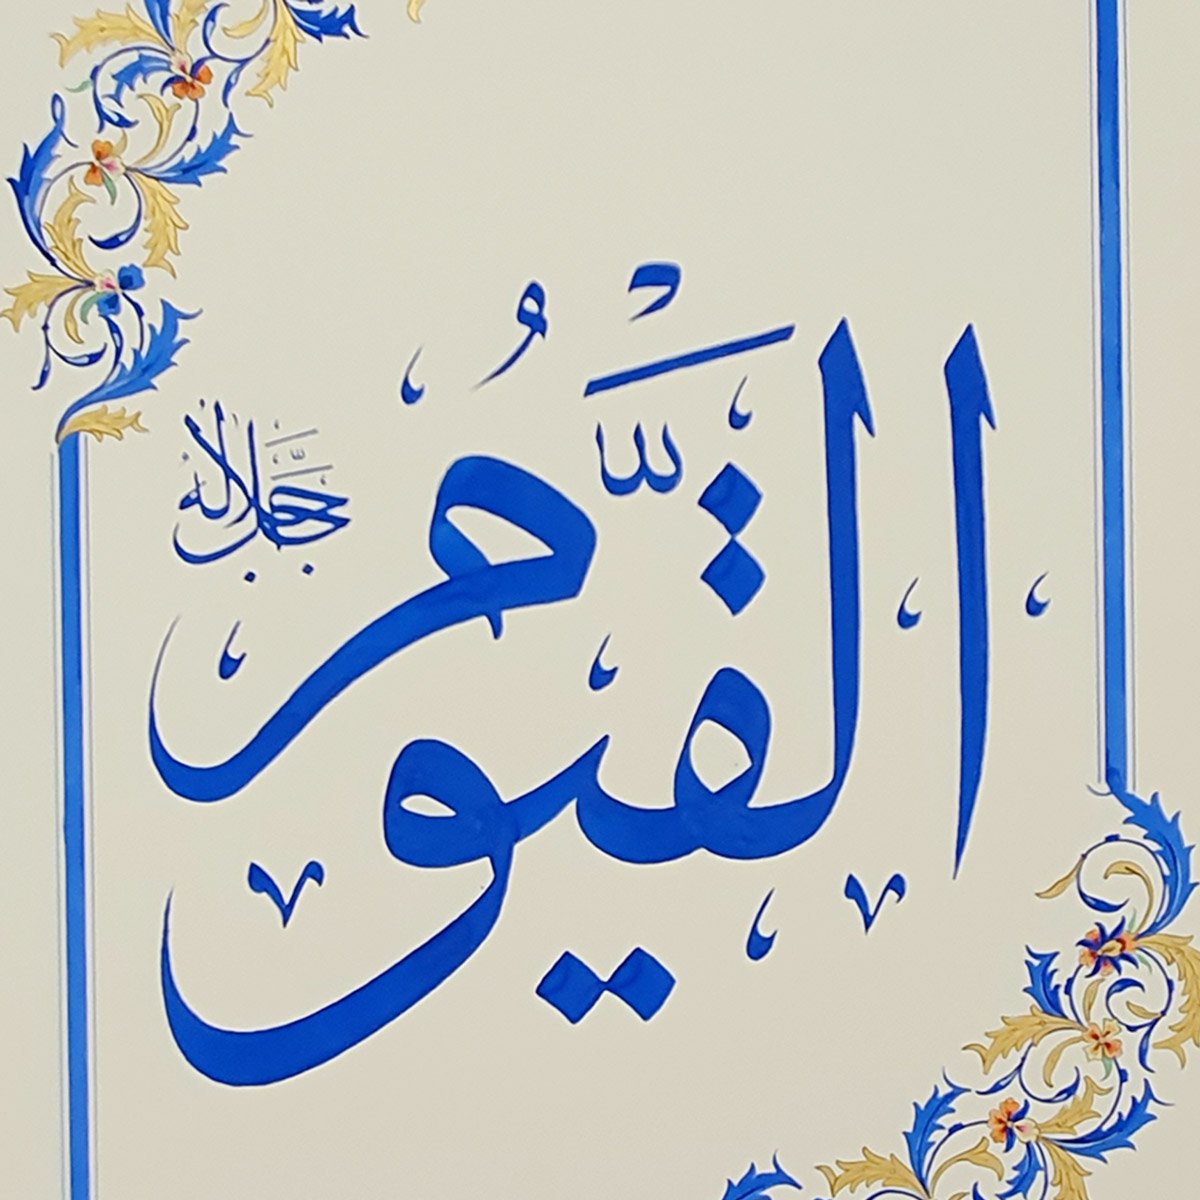 القَيُّومُ
جَلَّ جلاله